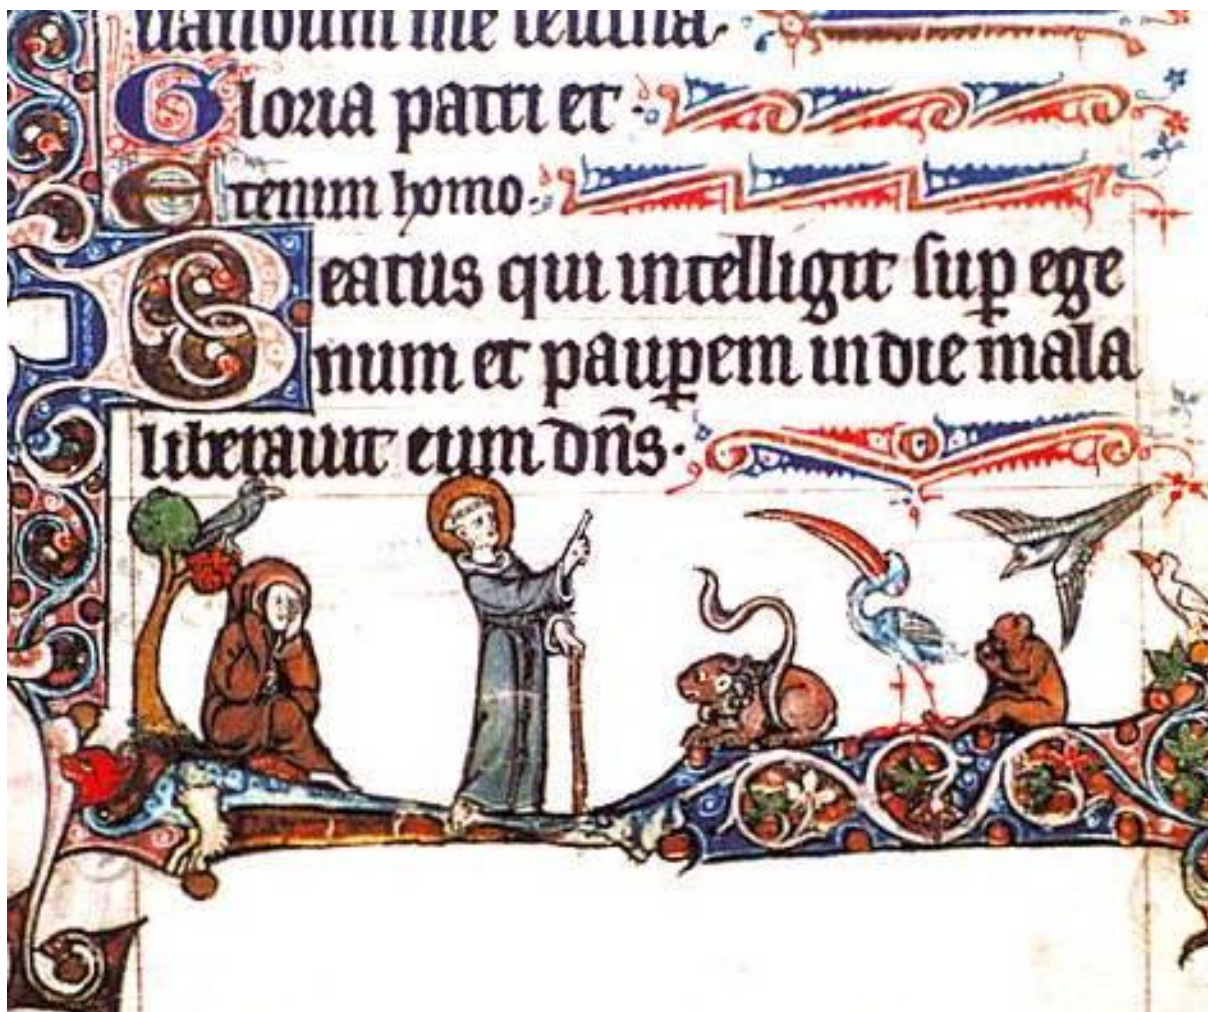 uandum me festina.
Gloria patri et
Etenim homo.
Beatus qui intelligit sup ege
num et paupem in die mala
liberauit eum dñs.